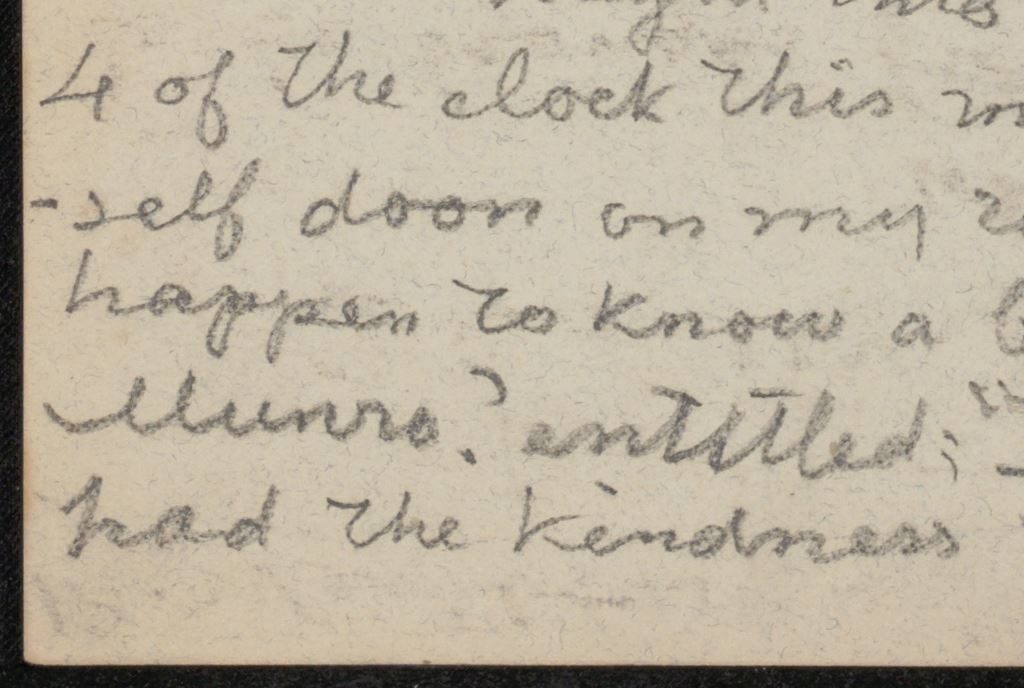 4 of the clock this
-self doon on my
happen to know a
Munro? entitled;
had the kindness